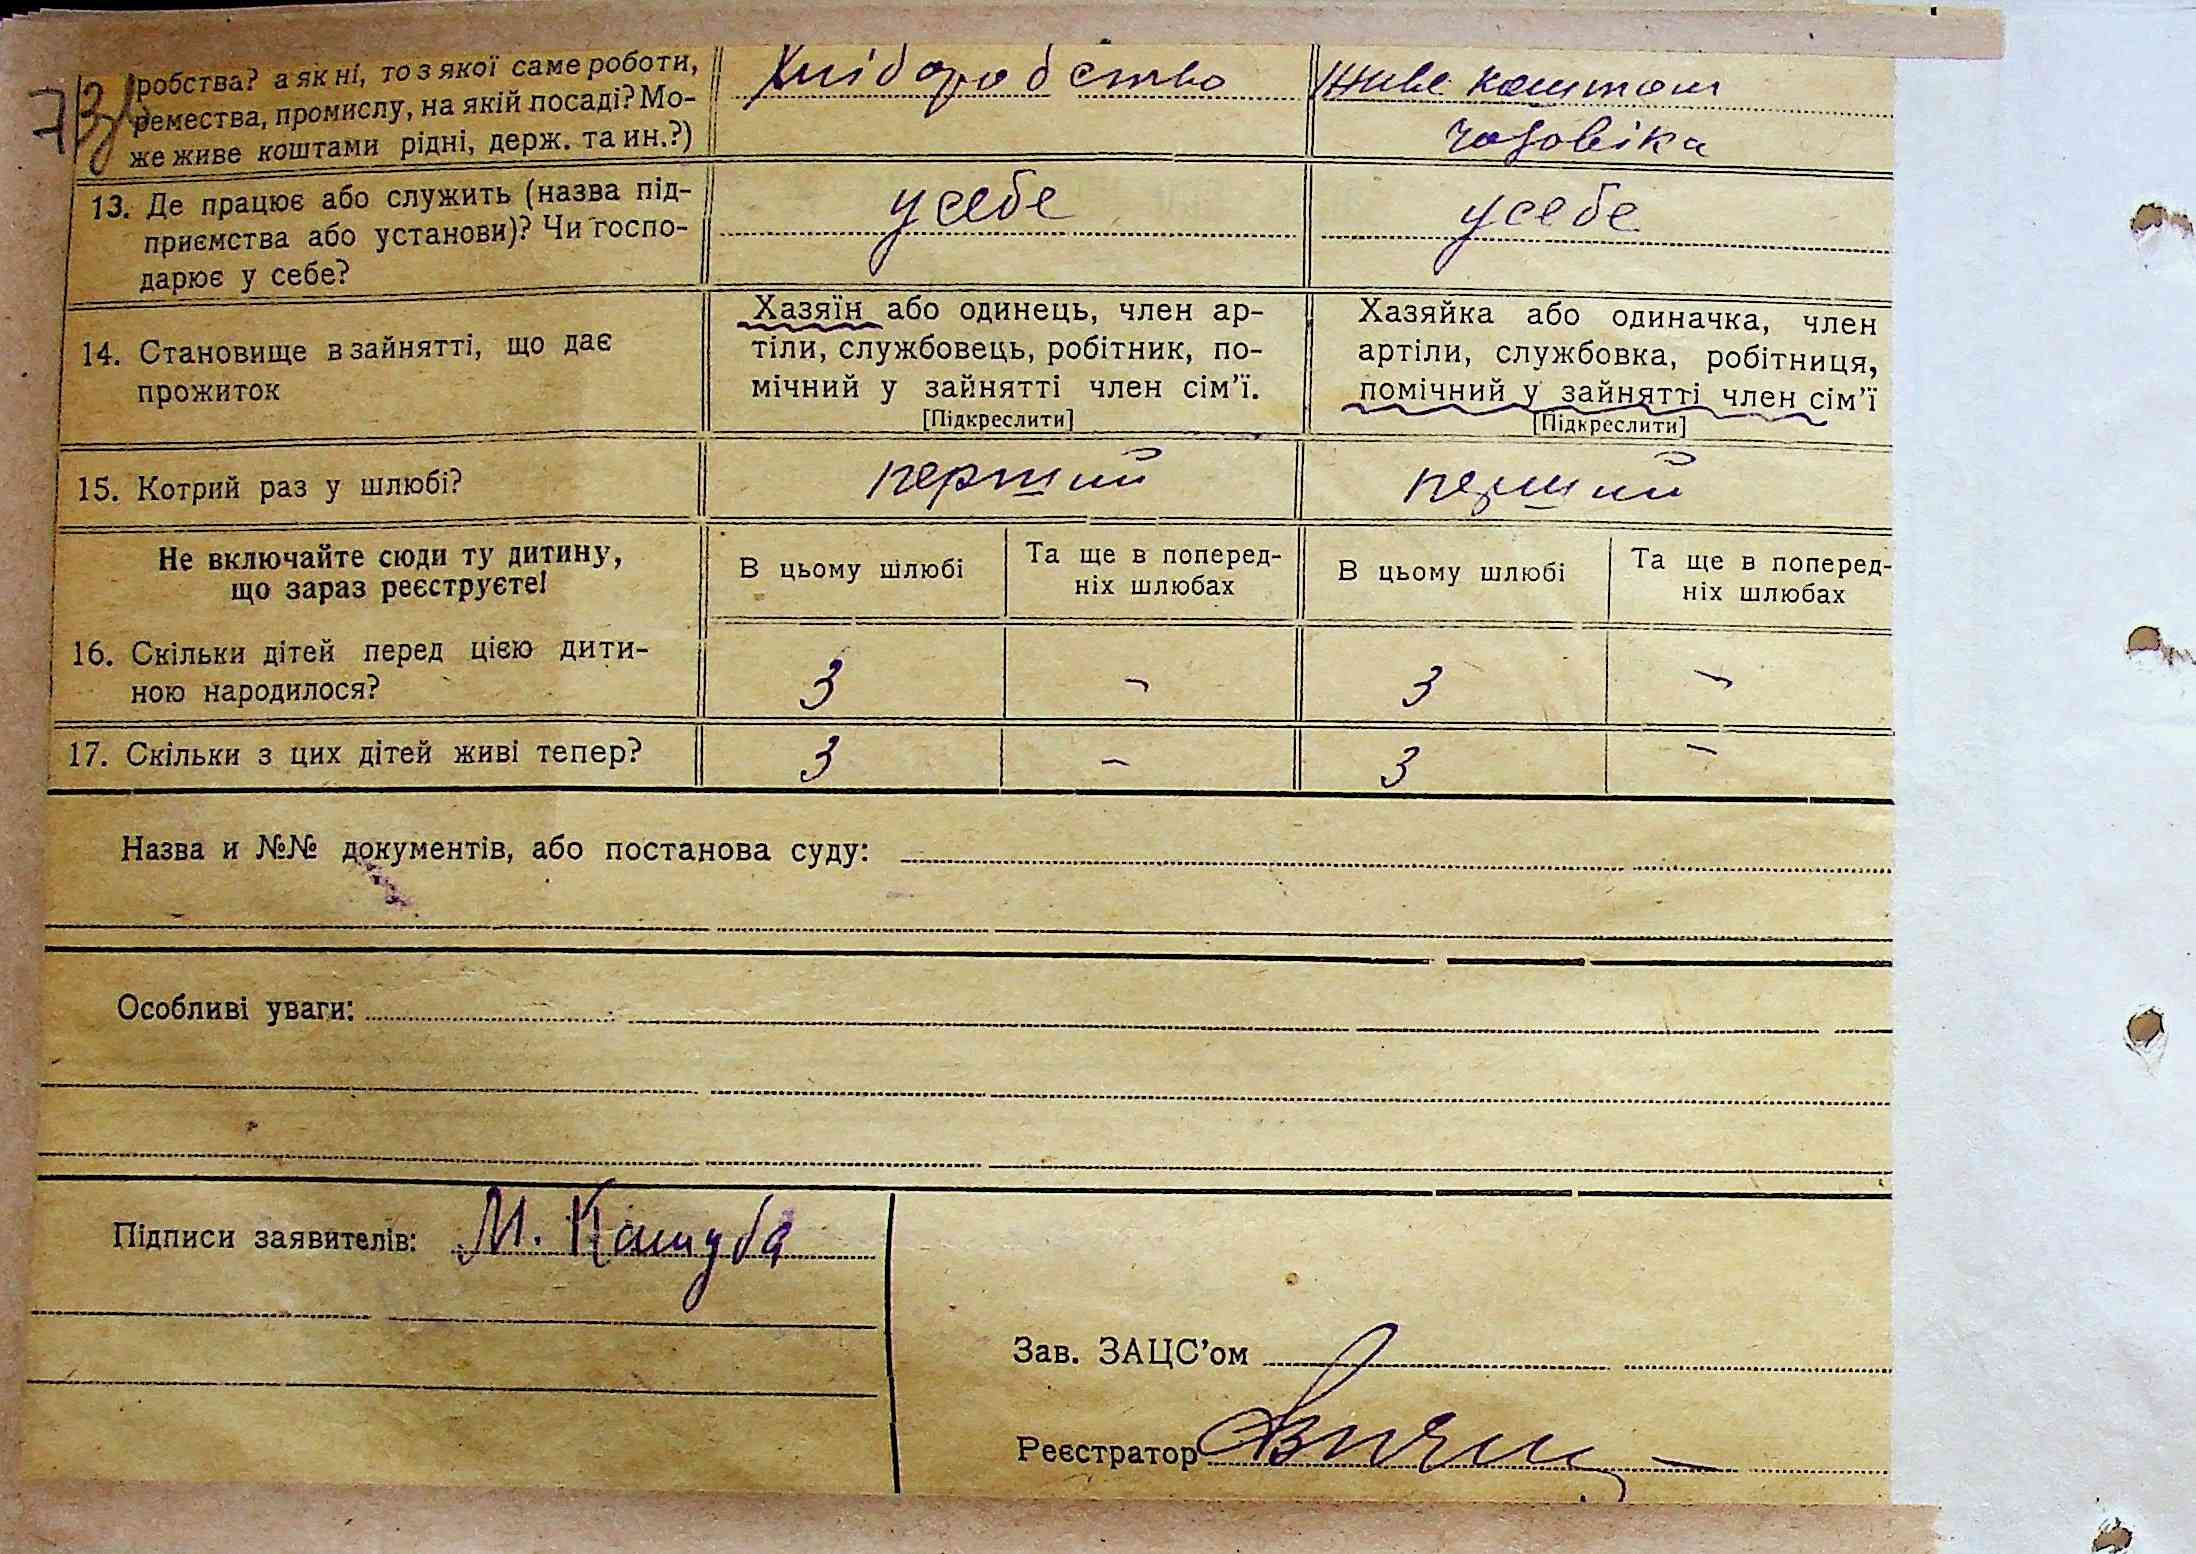 73
робства? а як ні, то з якої саме роботи,
ремества, промислу, на якій посаді? Мо-
же живе коштами рідні, держ. та ин.?)
Хліборобство
Живе коштом
чоловіка
13. Де працює або служить (назва під-
приємства або установи)? Чи госпо-
дарює у себе?
у себе
у себе
14. Становище в зайнятті, що дає
прожиток
Хазяїн або одинець, член ар-
тіли, службовець, робітник, по-
мічний у зайнятті член сім'ї.
[Підкреслити]
Хазяйка або одиначка, член
артіли, службовка, робітниця,
помічний у зайнятті член сім'ї
[Підкреслити]
15. Котрий раз у шлюбі?
перший
перший
Не включайте сюди ту дитину,
що зараз реєструєте!
В цьому шлюбі
Та ще в поперед-
ніх шлюбах
В цьому шлюбі
Та ще в поперед-
ніх шлюбах
16. Скільки дітей перед цією дити-
ною народилося?
3
-
3
-
17. Скільки з цих дітей живі тепер?
3
-
3
-
Назва и №№ документів, або постанова суду:
Особливі уваги:
Підписи заявителів: М. Кашуба
Зав. ЗАЦС'ом
Реєстратор